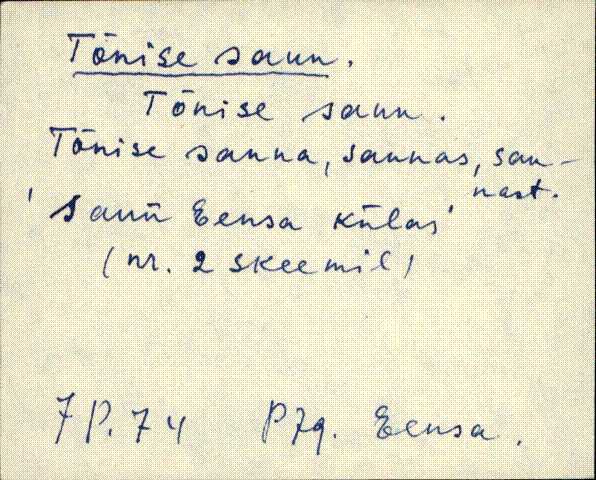 Tõnise saun.
Tõnise saun.
Tõnise sauna, saunas, sau-
nast.
'Saun Eensa külas'
(nr. 2 skeemil)
7 P. 74 Pzg. Eensa.